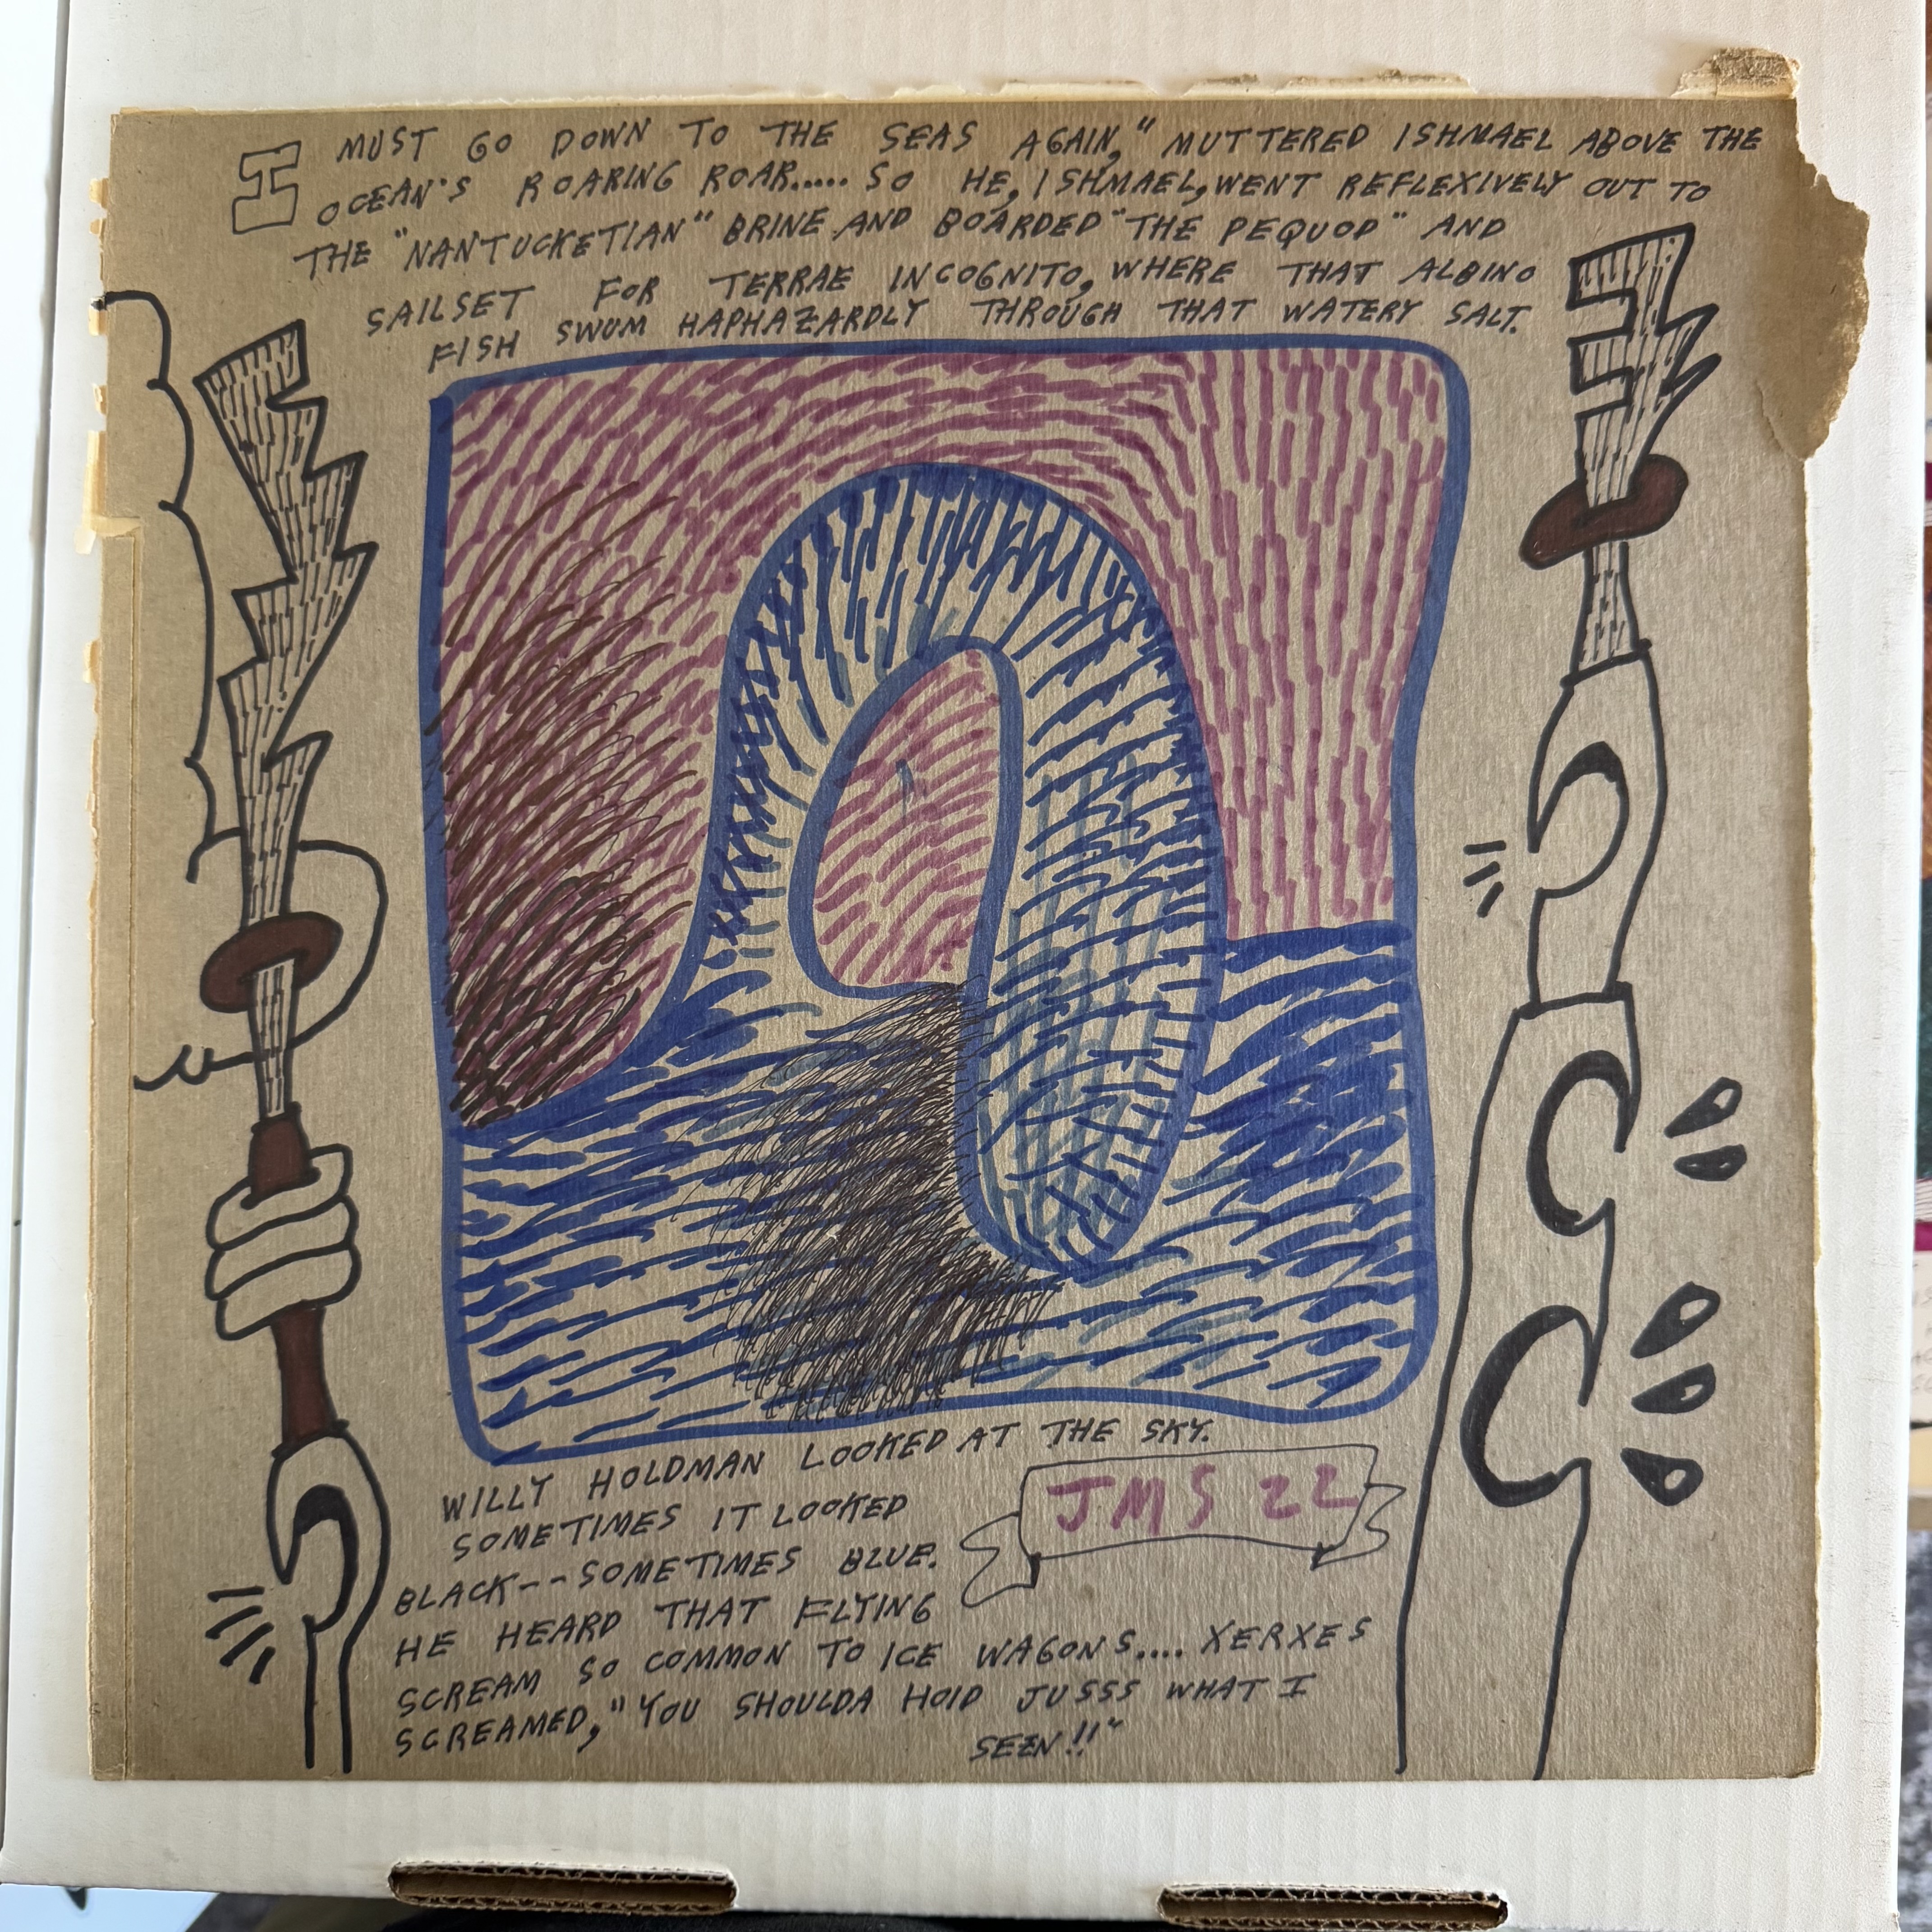 I MUST GO DOWN TO THE SEAS AGAIN," MUTTERED ISHMAEL ABOVE THE
OCEAN'S ROARING ROAR..... SO HE, ISHMAEL, WENT REFLEXIVELY OUT TO
THE "NANTUCKETIAN" BRINE AND BOARDED "THE PEQUOD" AND
SAILSET FOR TERRAE INCOGNITO, WHERE THAT ALBINO
FISH SWUM HAPHAZARDLY THROUGH THAT WATERY SALT.
WILLY HOLDMAN LOOKED AT THE SKY.
SOMETIMES IT LOOKED
BLACK--SOMETIMES BLUE.
HE HEARD THAT FLYING
SCREAM SO COMMON TO ICE WAGONS.... XERXES
SCREAMED, "YOU SHOULDA HOID JUSSS WHAT I
SEEN!!"
JMS 22